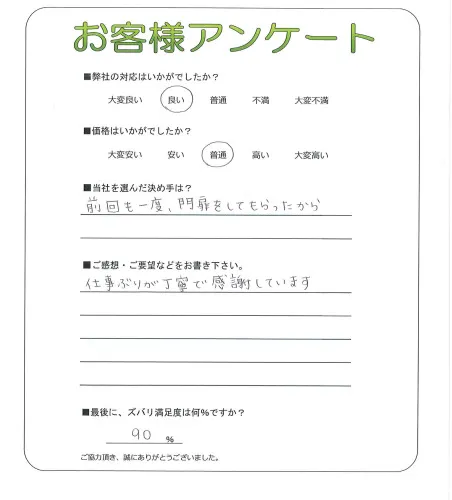 お客様アンケート
■弊社の対応はいかがでしたか？
大変良い 良い 普通 不満 大変不満
■価格はいかがでしたか？
大変安い 安い 普通 高い 大変高い
■当社を選んだ決め手は？
前回も一度、門扉をしてもらったから
■ご感想・ご要望などをお書き下さい。
仕事ぶりが丁寧で感謝しています
■最後に、ズバリ満足度は何％ですか？
90 ％
ご協力頂き、誠にありがとうございました。